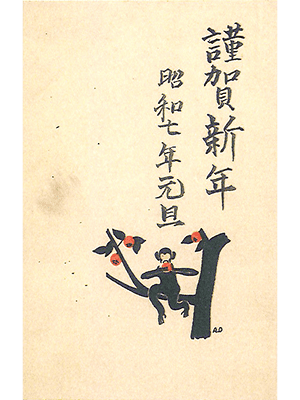 謹賀新年
昭和七年元旦